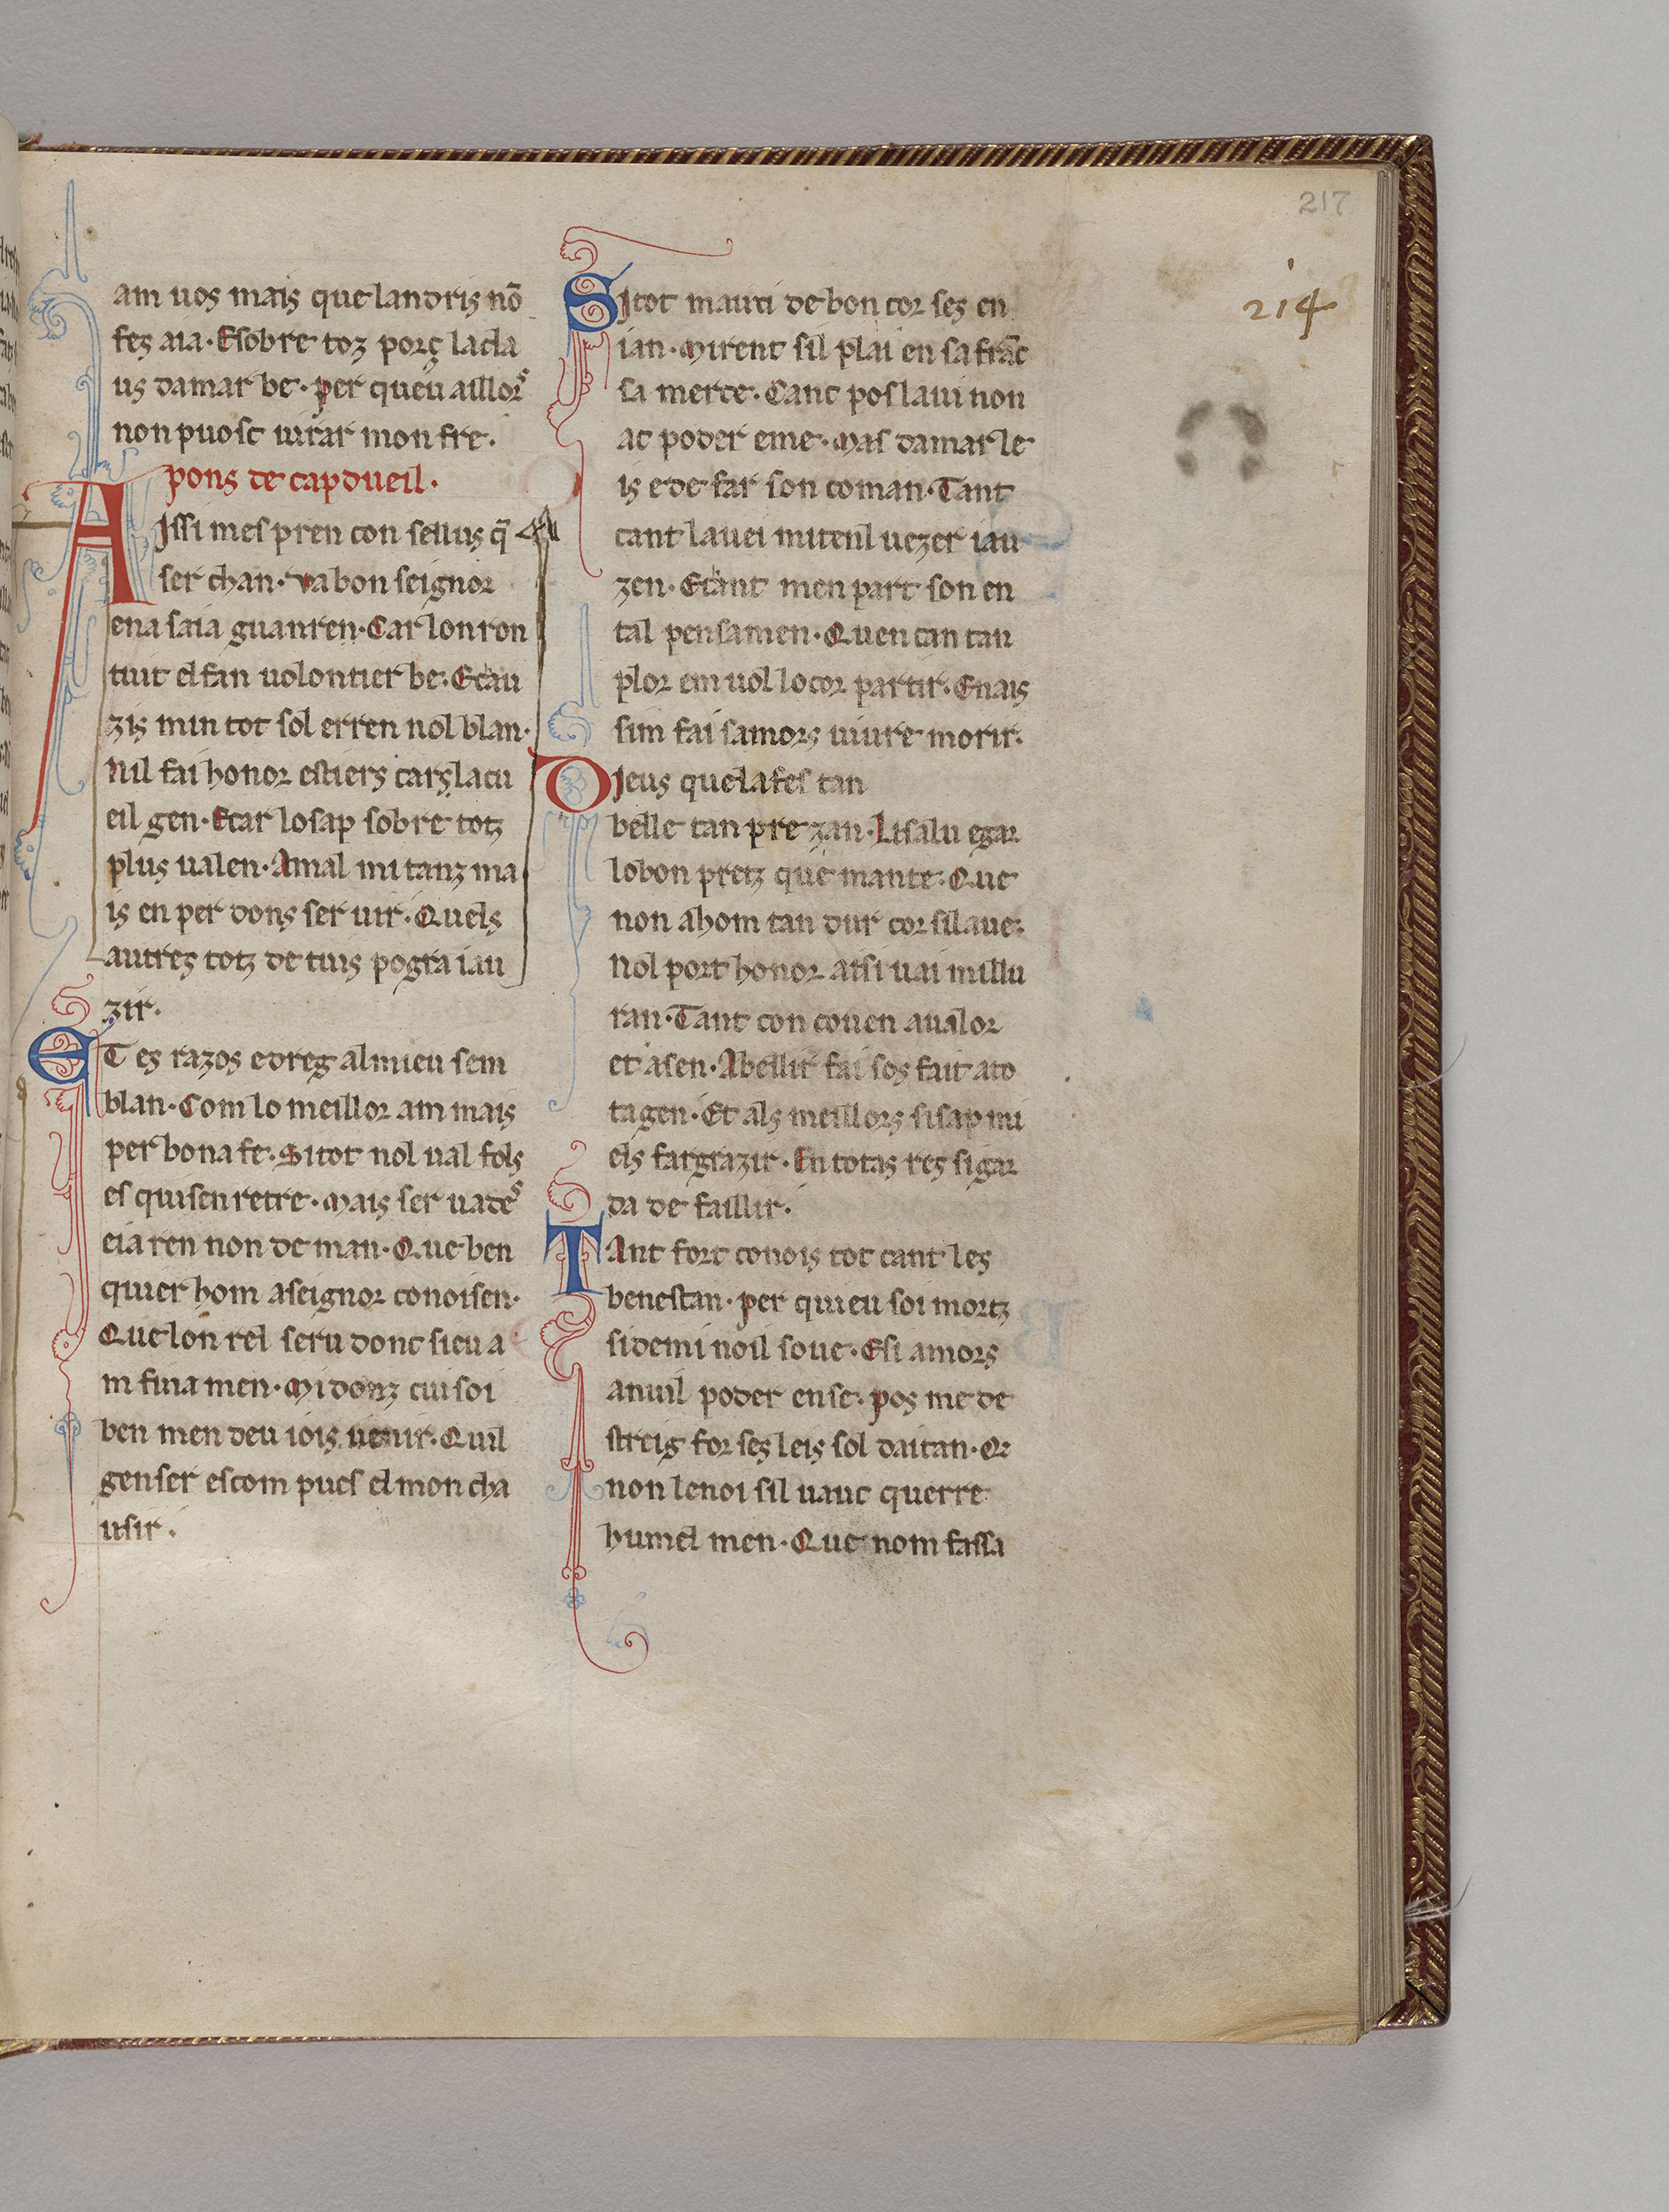 217
214
am uos mais que landris nō
fes aia· E sobre toz porç la cla
us damar be· per queu aillors
non puosc uirar mon fre·
pons de capdueil·
AIssi mes pren con sellus q̄
ser chan· va bon seignor
ena saia guanren· Car lonron
tiut el fan uolontier be· E cau
zis min tot sol erren nol blan·
Nil fai honor estiers cars lacu
eil gen· E car lo sap sobre totz
plus ualen· Amal mi tanz ma
is en per dons ser uir· Quels
autres totz de tuis pogra iau
zir·
ET es razos e dreg al mieu sem
blan· Com lo meillor am mais
per bona fe· Si tot nol ual fols
es qui sen retre· Mais ser uades
eia ren non de man· Que ben
quier hom a seignor conoisen·
Que lon rel seru donc sieu a
m fina men· Mi donz cui soi
ben men deu iois uenir· Quil
genser es com pues el mon cha
usir·
SItot mauci de bon cor ses en
ian· Mirent sil plai en sa frāc
sa merce· Canc pos laui non
ac poder e me· Mas damar le
is e de far son coman· Tant
cant lauei mi tenl uezer iau
zen· E cant men part son en
tal pensamen· Quen can tan
plor em uol lo cor partir· Enais
sim fai samors uiure morir·
DIeus que la fes tan
belle tan pre zan· Li salu egar
lo bon pretz que mante· Que
non a hom tan dur cor sil aue·
Nol port honor aisi uai millu
ran· Tant con couen aualor
et a sen· Abellir fai sos fait a to
ta gen· Et als meillors si sap mi
els far grazir· En totas res si gar
da de faillir·
TAnt fort conois tot cant les
benestan· per quieu soi mortz
si de mi noil soue· E si amors
anuil poder en se· pos me de
streig for ses leis sol daitan· Qr
non lenoi sil uauc querre
humel men· Que nom fassa